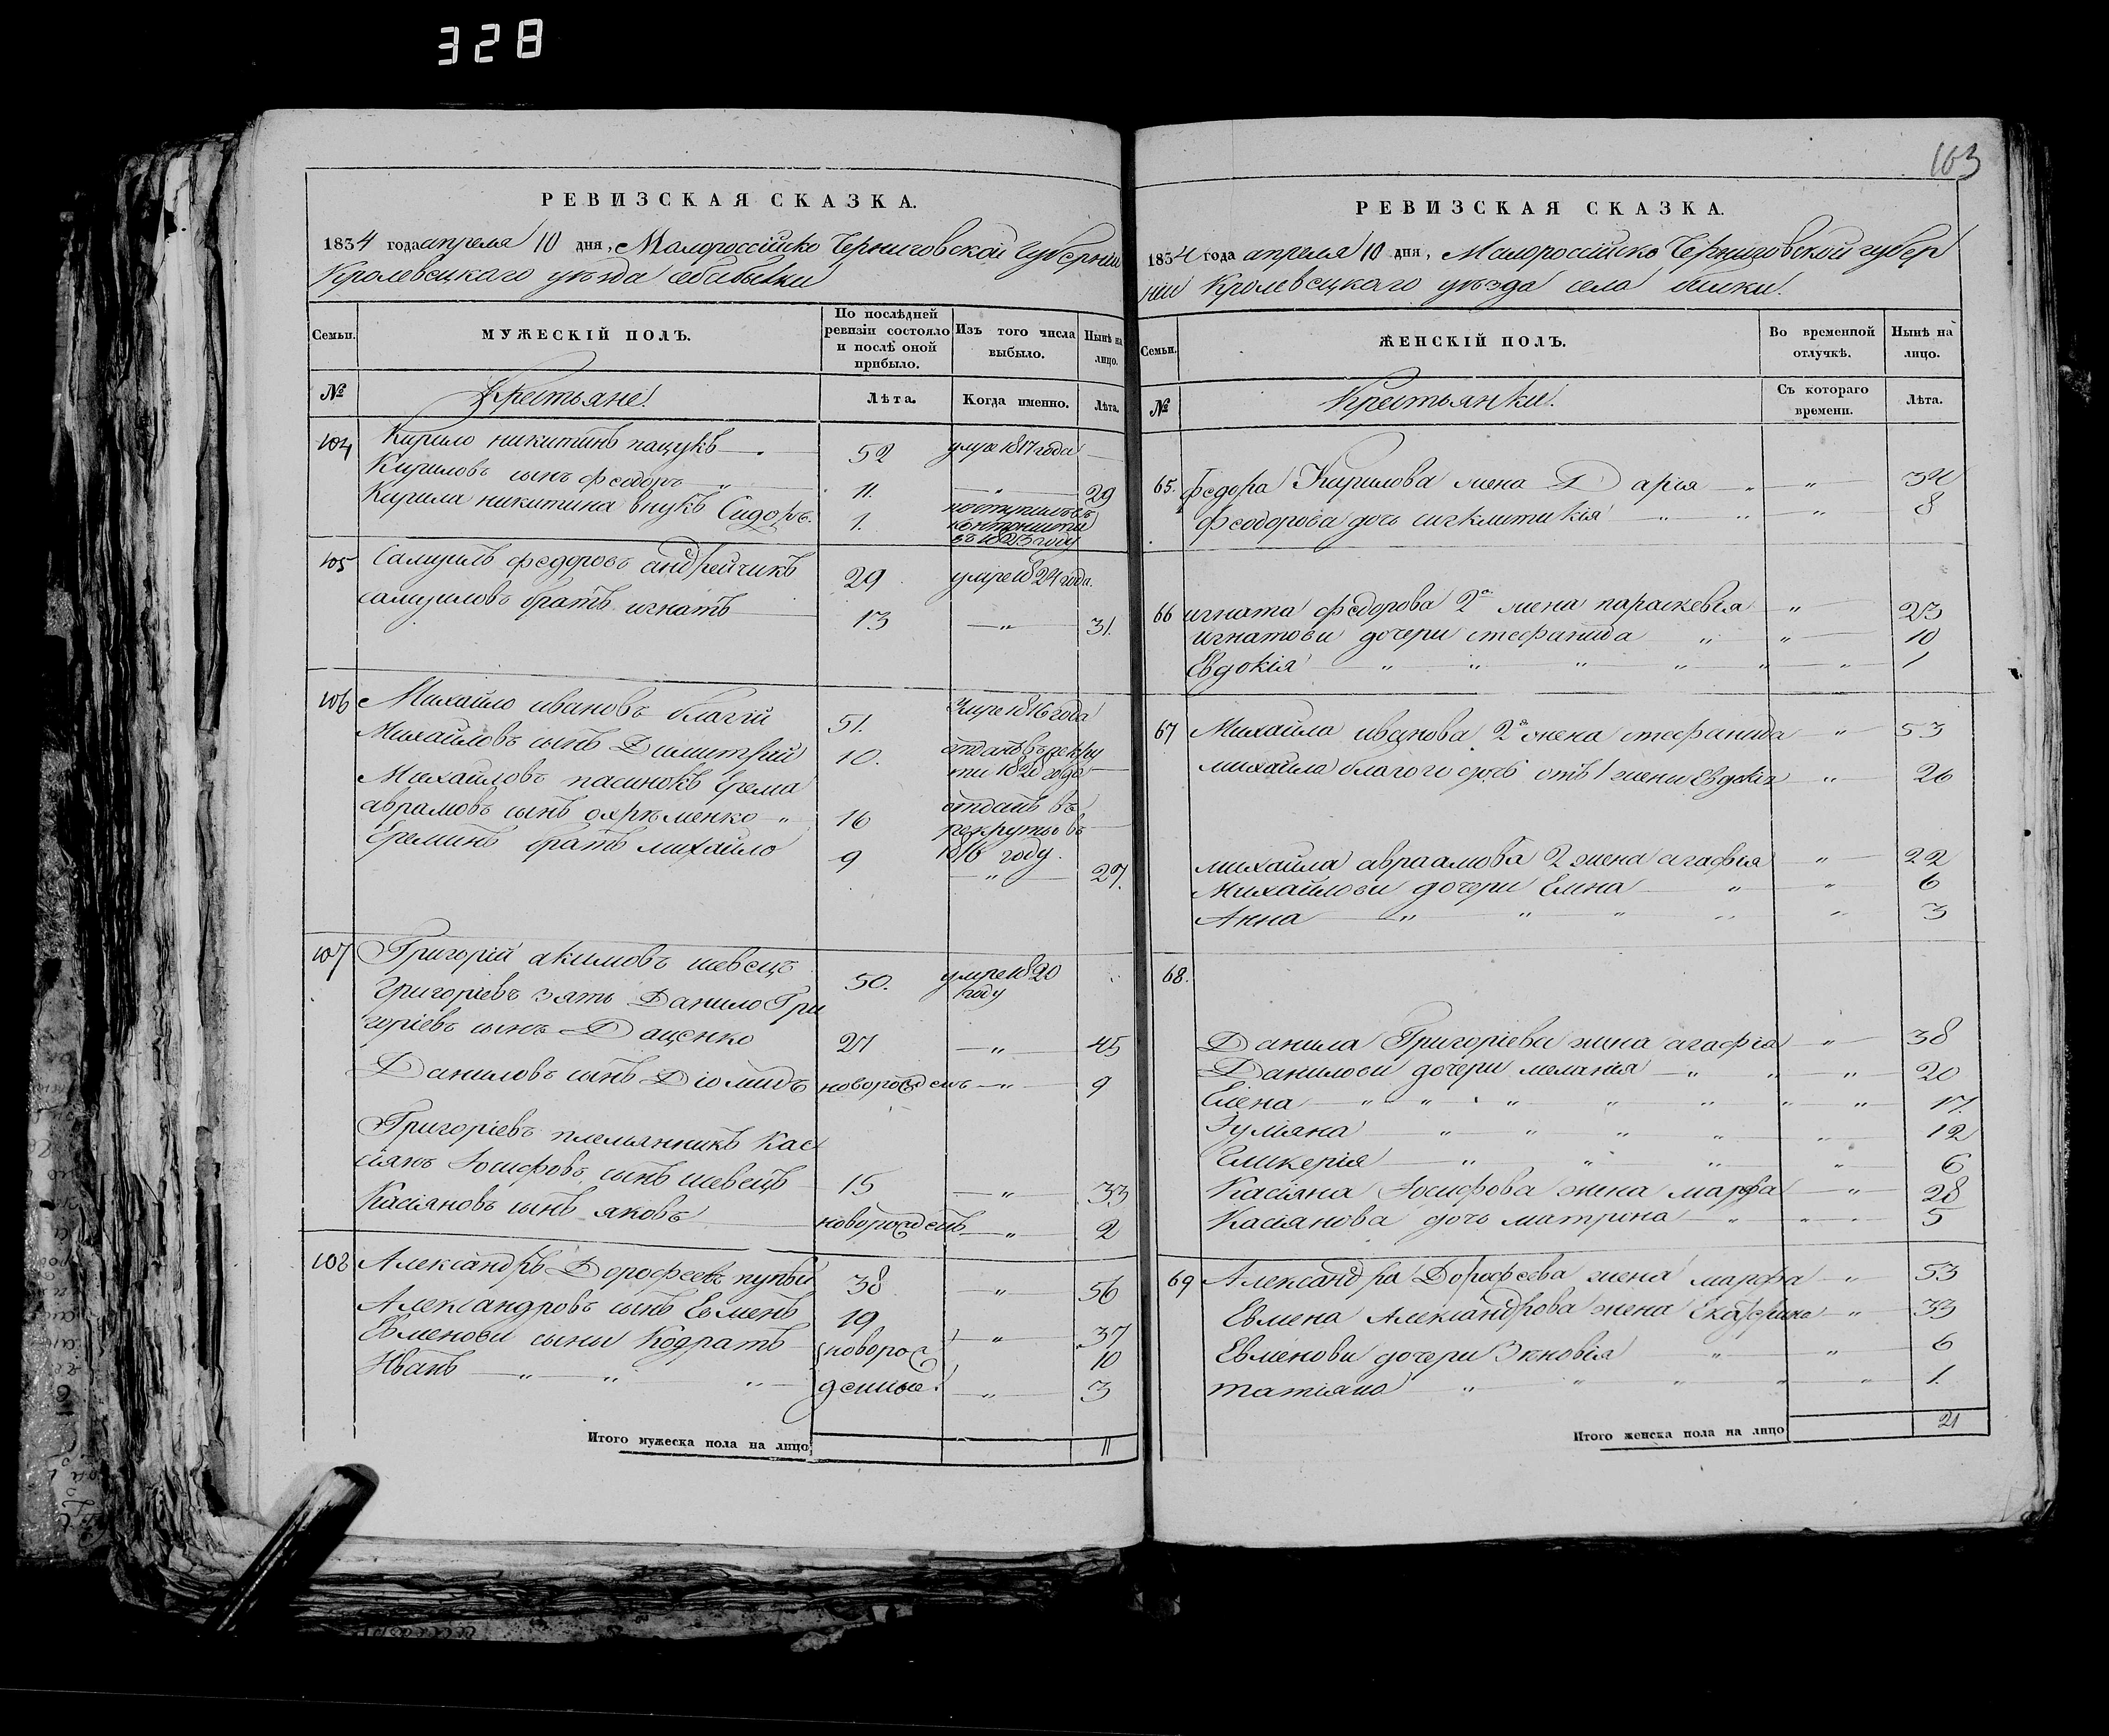 328
РЕВИЗСКАЯ СКАЗКА.
1834 года апреля 10 дня, Малороссійско Черниговской Губерніи
Кролевецкаго уѣзда села
Семьи.
МУЖЕСКІЙ ПОЛЪ.
По послѣдней ревизіи состояло и послѣ оной прибыло.
Изъ того числа выбыло.
Нынѣ на лицо.
№
Крестьяне.
Лѣта.
Когда именно.
Лѣта.
104 Кирило никитинъ пацукъ 52 умре 1817 года
Кириловъ сынъ феодоръ " 11. " 29
Кирила никитина внукъ Сидоръ. 1. въ 1823 году
105 Самуилъ федоровъ андрейчикъ 29 умре 1824 года.
самуиловъ братъ игнатъ 13 " 31.
106 Михайло ивановъ благій 51. Умре 1816 года
Михайловъ сынъ Димитрій 10. отданъ въ рекру
ти 1820 года
Михайловъ пасинокъ Ерема
аврамовъ сынъ охрѣменко " 16 отданъ въ
рекруты въ
1816 году.
Ереминъ братъ михайло 9 " 27.
107 Григорій акимовъ шевецъ 50. умре 1820
году
Григоріевъ зять Данило Гри
горіевъ сынъ Даценко 27 " 45
Даниловъ сынъ Діомидъ новорожденъ " 9
Григоріевъ племянникъ Кас
сіянъ Іосифовъ сынъ шевецъ 15 " 33
Касіяновъ сынъ яковъ новорожденъ " 2
108 Александръ Дорофеевъ купый 38 " 56
Александровъ сынъ Евменъ 19 " 37
Евменови сыны Кодратъ новорож 10
Иванъ " " " денные. " 3
Итого мужеска пола на лицо 11
163
РЕВИЗСКАЯ СКАЗКА.
1834 года апреля 10 дня, Малоросійско Черниговской губер
ніи Кролевецкаго уѣзда села билки.
Семьи.
ЖЕНСКІЙ ПОЛЪ.
Во временной отлучкѣ.
Нынѣ на лицо.
№
Крестьянки.
Съ котораго времени.
Лѣта.
65. Федора Кирилова жена Дарія " " 34
Феодорова дочь " " " 8
66 игната федорова 2а жена параскевія " 23
игнатови дочери стефанида " " 10
Евдокія " " " " " " 1
67 Михайла иванова 2а жена стефанида " 53
михайла благого дочь отъ 1 жени Евдокія " 26
михайла авраамова 2 жена агафія " 22
Михайлови дочери Елена " " 6
Анна " " " " " 3
68.
Данила Григоріева жена агафія " 38
Данилови дочери меланія " " " 20
Елена " " " " " " " " 17.
Іуліяна " " " " " 12
Гликерія " " " " 6
Касіяна Іосифова жена марфа " 28
Касіянова дочь матрона " " " 5
69 Александра Дорофеева жена марфа " 53
Евмена Александрова жена Екатерина " 33
Евменови дочери Зиновія " " 6
татіяна " " " " " 1.
Итого женска пола на лицо 21